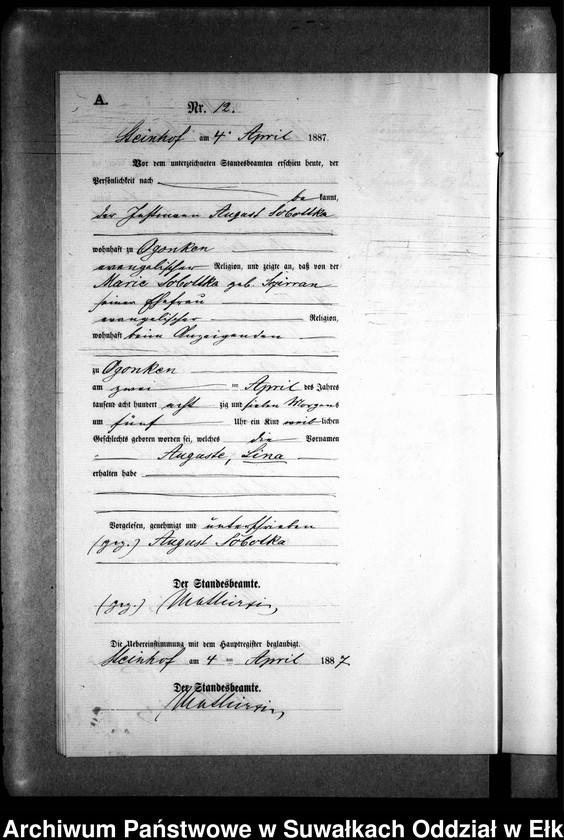 A.
Nr. 12.
Steinhof am 4ᵗ April 1887.
Vor dem unterzeichneten Standesbeamten erschien heute, der
Persönlichkeit nach
be kannt,
der Instmann August Sobottka
wohnhaft zu Ogonken
evangelischer Religion, und zeigte an, daß von der
Marie Sobottka geb.
seiner Ehefrau
evangelischer Religion,
wohnhaft beim Anzeigenden
zu Ogonken
am zwei ten April des Jahres
tausend acht hundert acht zig und sieben Morgens
um fünf Uhr ein Kind weib lichen
Geschlechts geboren worden sei, welches die Vornamen
Auguste, Lina
erhalten habe
Vorgelesen, genehmigt und unterschrieben
(gez.) August Sobottka
Der Standesbeamte.
(gez.)
Die Uebereinstimmung mit dem Hauptregister beglaubigt.
Steinhof am 4 ten April 1887
Der Standesbeamte.
Archiwum Państwowe w Suwałkach Oddział w Ełk